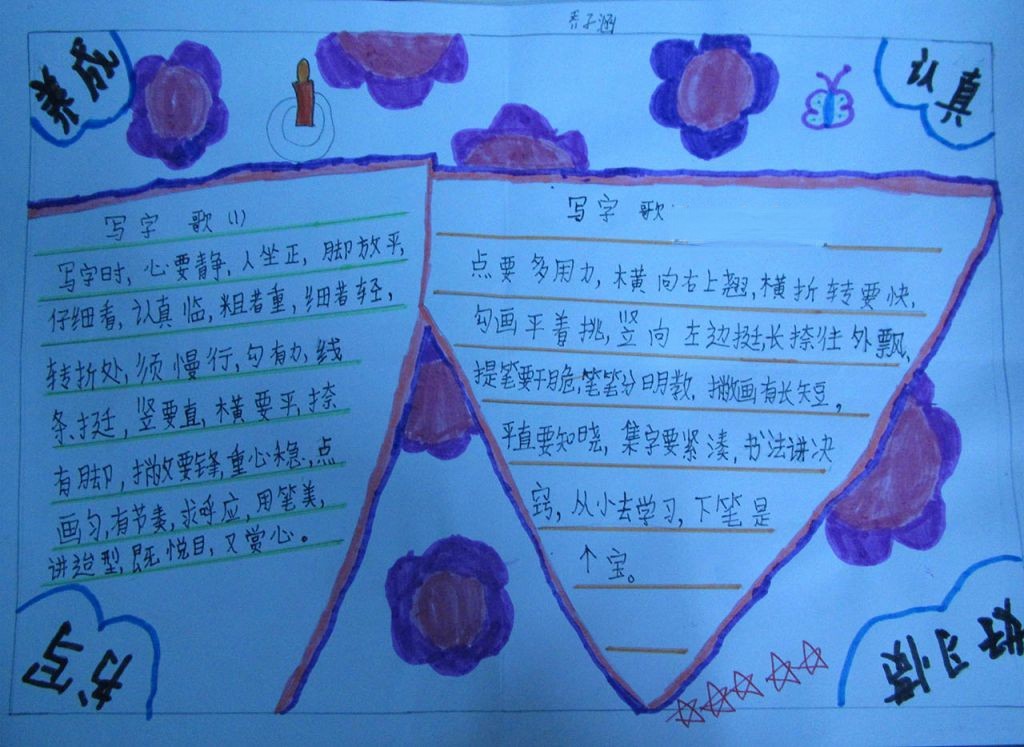 乔子涵
养成
认真
写字 歌(1)
写字时,心要静,人坐正,脚放平,
仔细看,认真临,粗者重,细者轻,
转折处,须慢行,勾有力,线
条挺,竖要直,横要平,捺
有脚,撇要锋,重心稳,点
画匀,有节奏,求呼应,用笔美,
讲造型,既悦目,又赏心。
写字 歌
点要多用力,横向右上翘,横折转要快,
勾画平着挑,竖向左边挺,长捺往外飘,
提笔要干脆,笔笔分明教,撇画有长短,
平直要知晓,集字要紧凑,书法讲决
窍,从小去学习,下笔是
个宝。
书写
好习惯